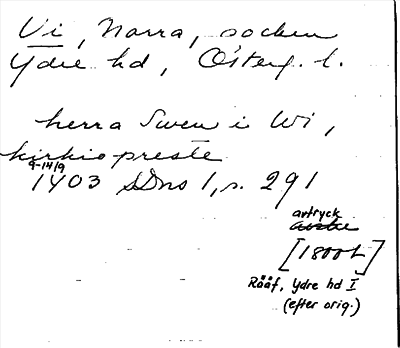 Vi, Norra, socken
Ydre hd, Österg. l.
herra Swen i Wi,
kirkiopreste
9-14/9
1403 SDns 1, s. 291
avtryck
[1800t]
Rääf, Ydre hd I
(efter orig.)